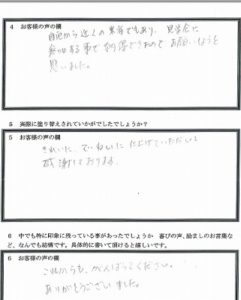 4 お客様の声の欄
自宅から近くの業者でもあり、見学会に
来てみる事で納得できたので お願いしようと
思いました。
5 実際に塗り替えされていかがでしたでしょうか?
5 お客様の声の欄
きれいに、ていねいに 仕上げていただいて
感謝しております。
6 中でも特に印象に残っている事があったでしょうか 喜びの声、励ましのお言葉な
ど、なんでも結構です。具体的に書いて頂けると嬉しいです。
6 お客様の声の欄
これからも、がんばってください。
ありがとうございました。